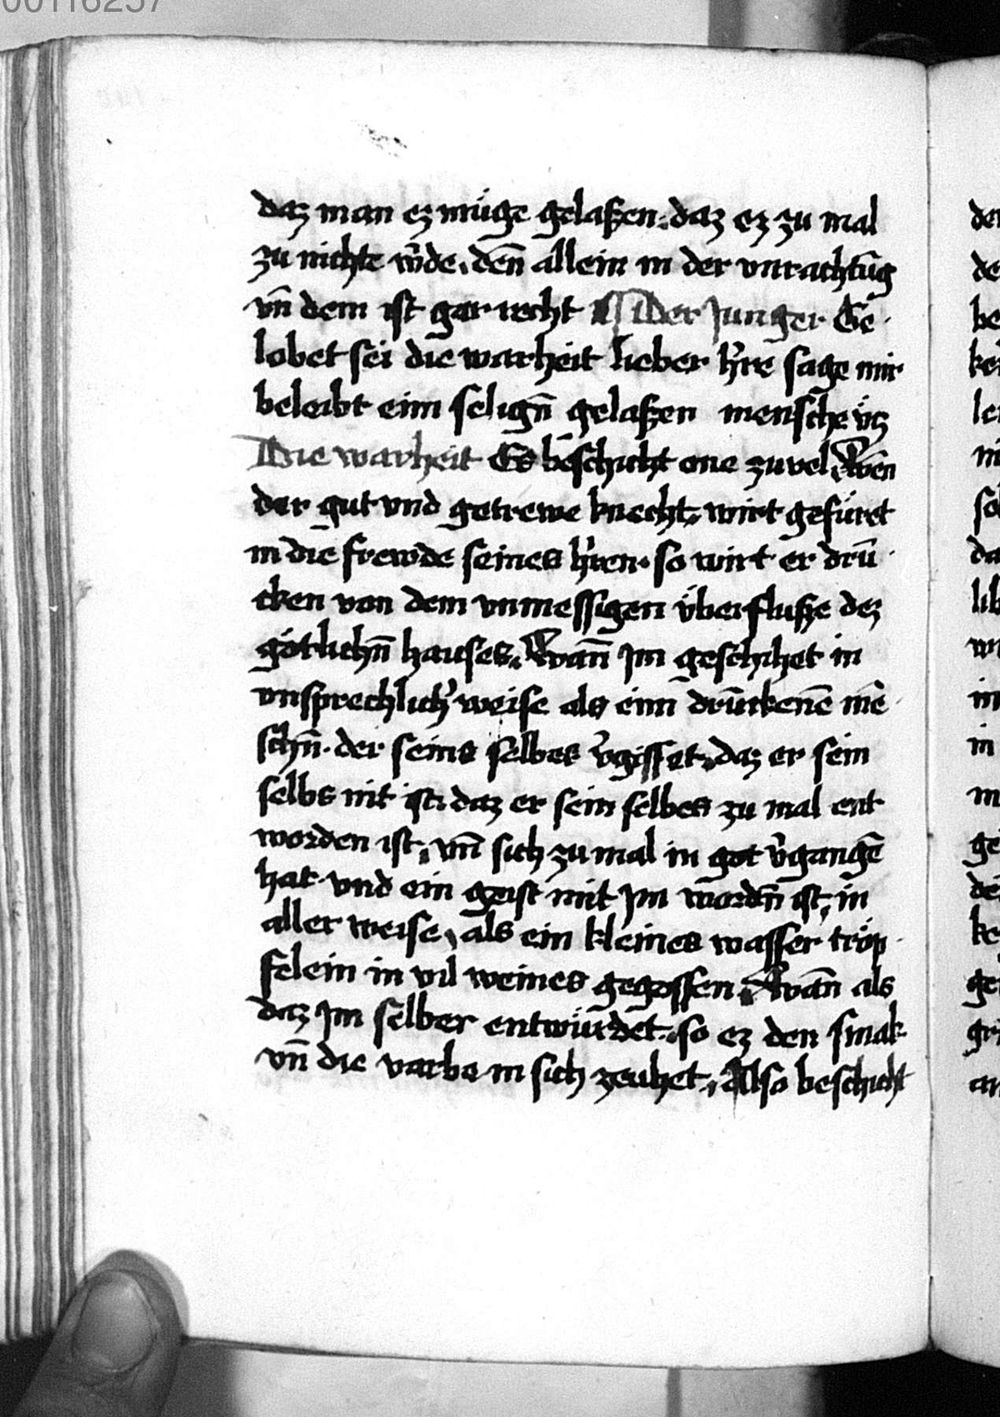 00116257
daz man ez müge gelaßen. daz ez zu mal
zu nichte w̄de. den̄ allein in der vnrachtūg
vn̄ dem ist gar recht ¶ Der Junger Ge
lobet sei die warheit lieber h̓re sage mir
beleibt eim selign̄ gelaßen mensche
Die warheit Es beschicht one zuvel Wēn
der gut vnd getrewe knecht. wirt gefüret
in die frewde seines h̓ren. so wirt er drū
cken von dem vnmessigen überfluße dez
götlichn̄ hauses. Wan̄ Jm geschihet in
vnsprechlich̓ weise als eim drūckenē mē
schn̄. der seins selbes v̓gisset. daz er sein
selbs nit ist. daz er sein selbes zu mal ent
worden ist. vn̄ sich zu mal in got v̓gangē
hat. vnd ein geist mit Jm wordn̄ ist, in
aller weise, als ein kleines wasser tröp
felein in vil weines gegossen. Wan̄ als
daz Jm selber entwürdet. so ez den smak
vn̄ die varbe in sich zeuhet. Also beschicht